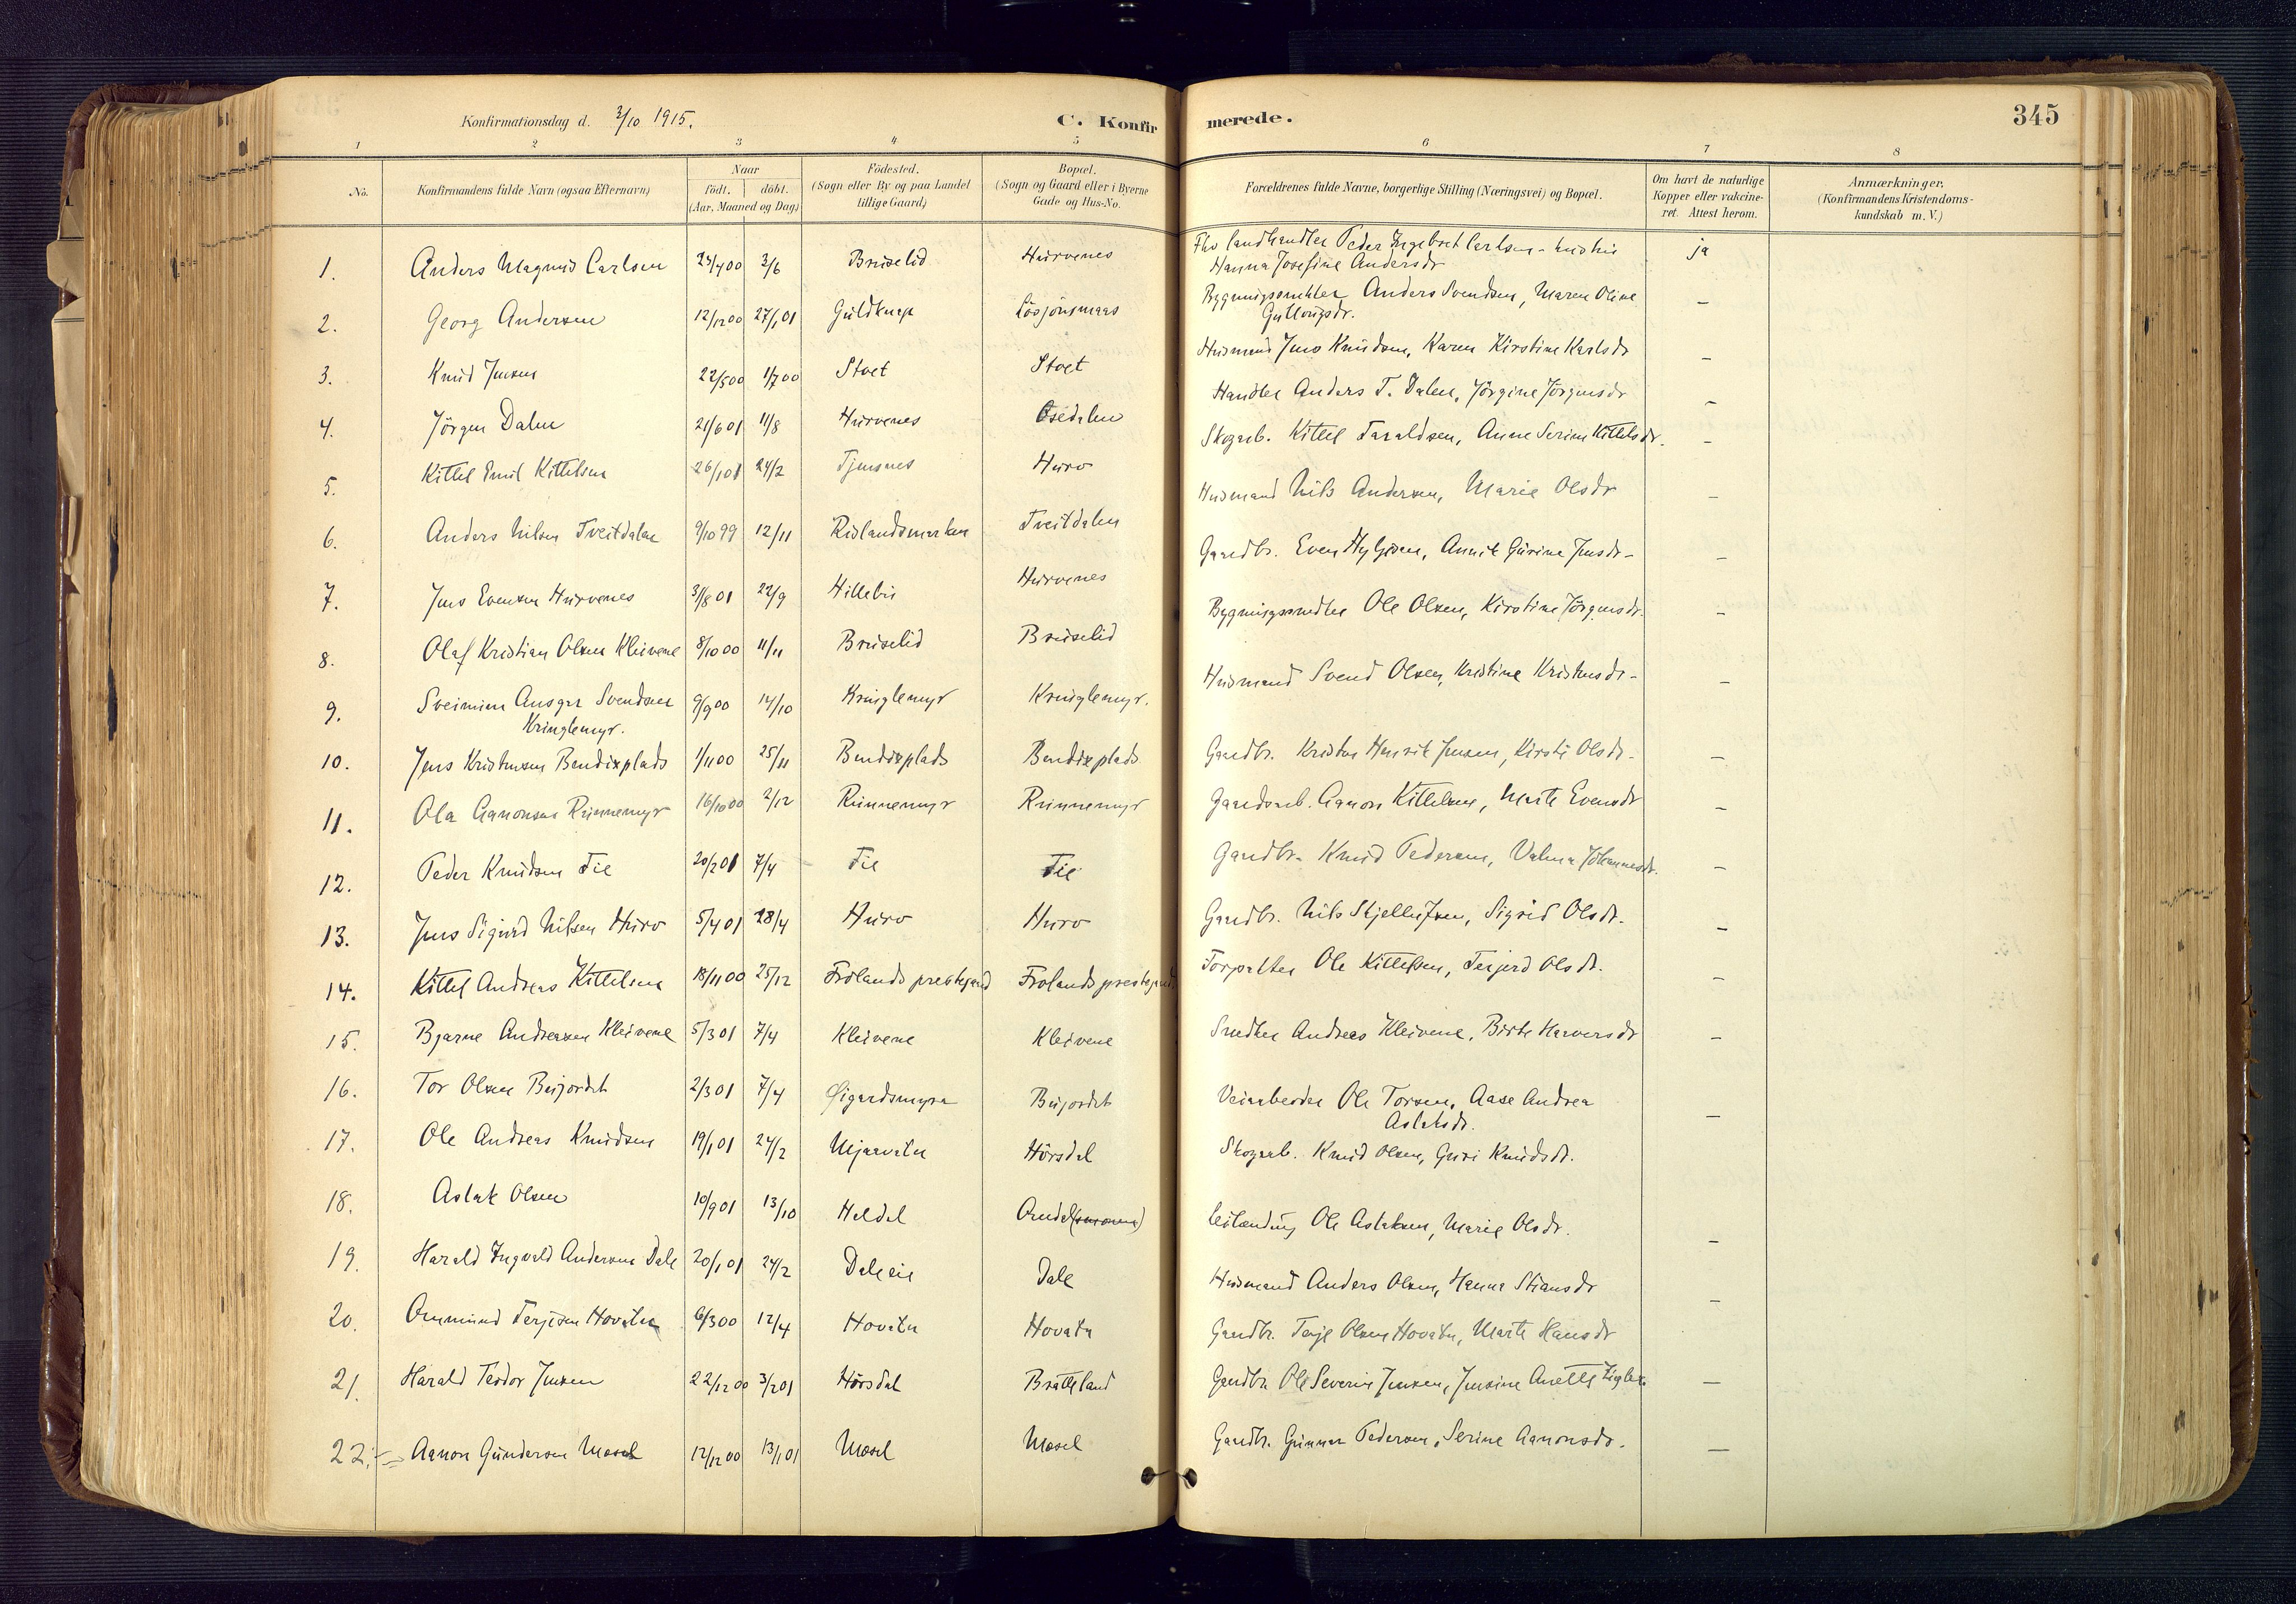 Konfirmationsdag d. 3/10 1915.
C. Konfirmerede.
345
1 2 3 4 5 6 7 8
No.
Konfirmandens fulde Navn (ogsaa Efternavn)
Naar
födt. döbt.
(Aar, Maaned og Dag)
Födested.
(Sogn eller By og paa Landet
tillige Gaard)
Bopæl.
(Sogn og Gaard eller i Byerne
Gade og Hus-No.
Forældrenes fulde Navne, borgerlige Stilling (Næringsvei) og Bopæl.
Om havt de naturlige
Kopper eller vakcine-
ret. Attest herom.
Anmærkninger.
(Konfirmandens Kristendoms-
kundskab m. V.)
1. Anders Magnus Carlsen 23/4 00 3/6 Bruselid Hurvenes Fhv landhandler Peder Ingebret Carlsen - hustru ja
Hanna Josefine Andersdr
2. Georg Andersen 12/12 00 27/1 01 Guldknap Lösjönsmaas Bygningssnekker Anders Svendsen, Maren Oline –
Gullougsdr.
3. Knud Jensen 22/5 00 1/7 00 Stoet Stoet Husmand Jens Knudsen, Karen Kirstine Karlsdr –
4. Jörgen Dalen 21/6 01 11/8 Hurvenes Osedalen Handler Anders T. Dalen, Jörgine Jörgensdr –
5. Kittel Emil Kittelsen 26/1 01 24/2 Tjensnes Hurv Skogarb. Kittel Taraldsen, Anne Serine Kittelsdr. –
6. Anders Nilsen Tveitdalen 9/10 99 12/11 Rislandsmarken Tveitdalen Husmand Nils Andersen, Marie Olsdr –
7. Jens Evensen Hurvenes 3/8 01 22/9 Hillebu Hurvenes Gaardbr. Even Nielsen, Annie Gurine Jensdr - –
8. Olaf Kristian Olsen Kleivene 8/10 00 11/11 Bruselid Bruselid Bygningssnedker Ole Olsen, Kirstine Jörgensdr. –
9. Sveinim Ansgar Svendsen 9/9 00 14/10 Kringlemyr Kringlemyr. Husmand Svend Olsen, Kristine Kristensdr - –
Kringlemyr.
10. Jens Kristensen Bendixplads 1/11 00 25/11 Bendixplads Bendixplads Gaardbr. Kristen Henrik Jensen, Kirsti Olsdr - –
11. Ola Aanonsen Runnemyr 16/10 00 2/12 Runnemyr Runnemyr Gaardsarb. Aanon Kittelsen, Marte Evensdr –
12. Peder Knudsen Fie 20/2 01 7/4 Fie Fie Gaardbr. Knud Pedersen, Valma Johannesdr. –
13. Jens Sigurd Nilsen Hurv 5/4 01 28/4 Hurv Hurv Gaardbr. Nils Skjellufsen, Sigrid Olsdr. –
14. Kittel Andreas Kittelsen 18/11 00 25/12 Frolands prestegaard Frolands prestegaard Forpakter Ole Kittelsen, Terjerd Olsdr. –
15. Bjarne Andreasen Kleivene 5/3 01 7/4 Kleivene Kleivene Snedker Andreas Kleivene, Birte Havorsdr –
16. Tor Olsen Bujordet 2/3 01 7/4 Øigardsmyra Bujordet Veiarbeider Ole Torsen, Aase Andrea –
Aslaksdr.
17. Ole Andreas Knudsen 19/1 01 24/2 Mjaavatn Hörsdal Skogarb. Knud Olsen, Guri Knudsdr.
18. Aslak Olsen 10/9 01 13/10 Heldal Ole Aslaksen, Marie Olsdr. –
19. Harald Ingvald Andersen Dale 20/1 01 24/2 Dale eie Dale Husmand Anders Olsen, Hanna Stiansdr –
20. Ommund Terjesen Hovatn 6/3 00 12/4 Hovatn Hovatn Gaardbr. Terje Olsen Hovatn, Marte Hansdr
21. Harald Teodor Jensen 22/12 00 3/2 01 Hörsdal Bratteland Gaardbr. Ole Severin Jensen, Jensine Anette Zigler. –
22. Aanon Gundersen Mosel 12/12 00 13/1 01 Mosel Mosel Gaardbr. Gunnar Pedersen, Serine Aanonsdr. –